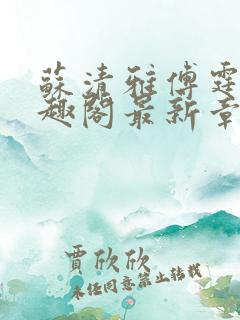 蘇清雅傅霆
趣閣最新章
賈欣欣
未任同意禁止轉載